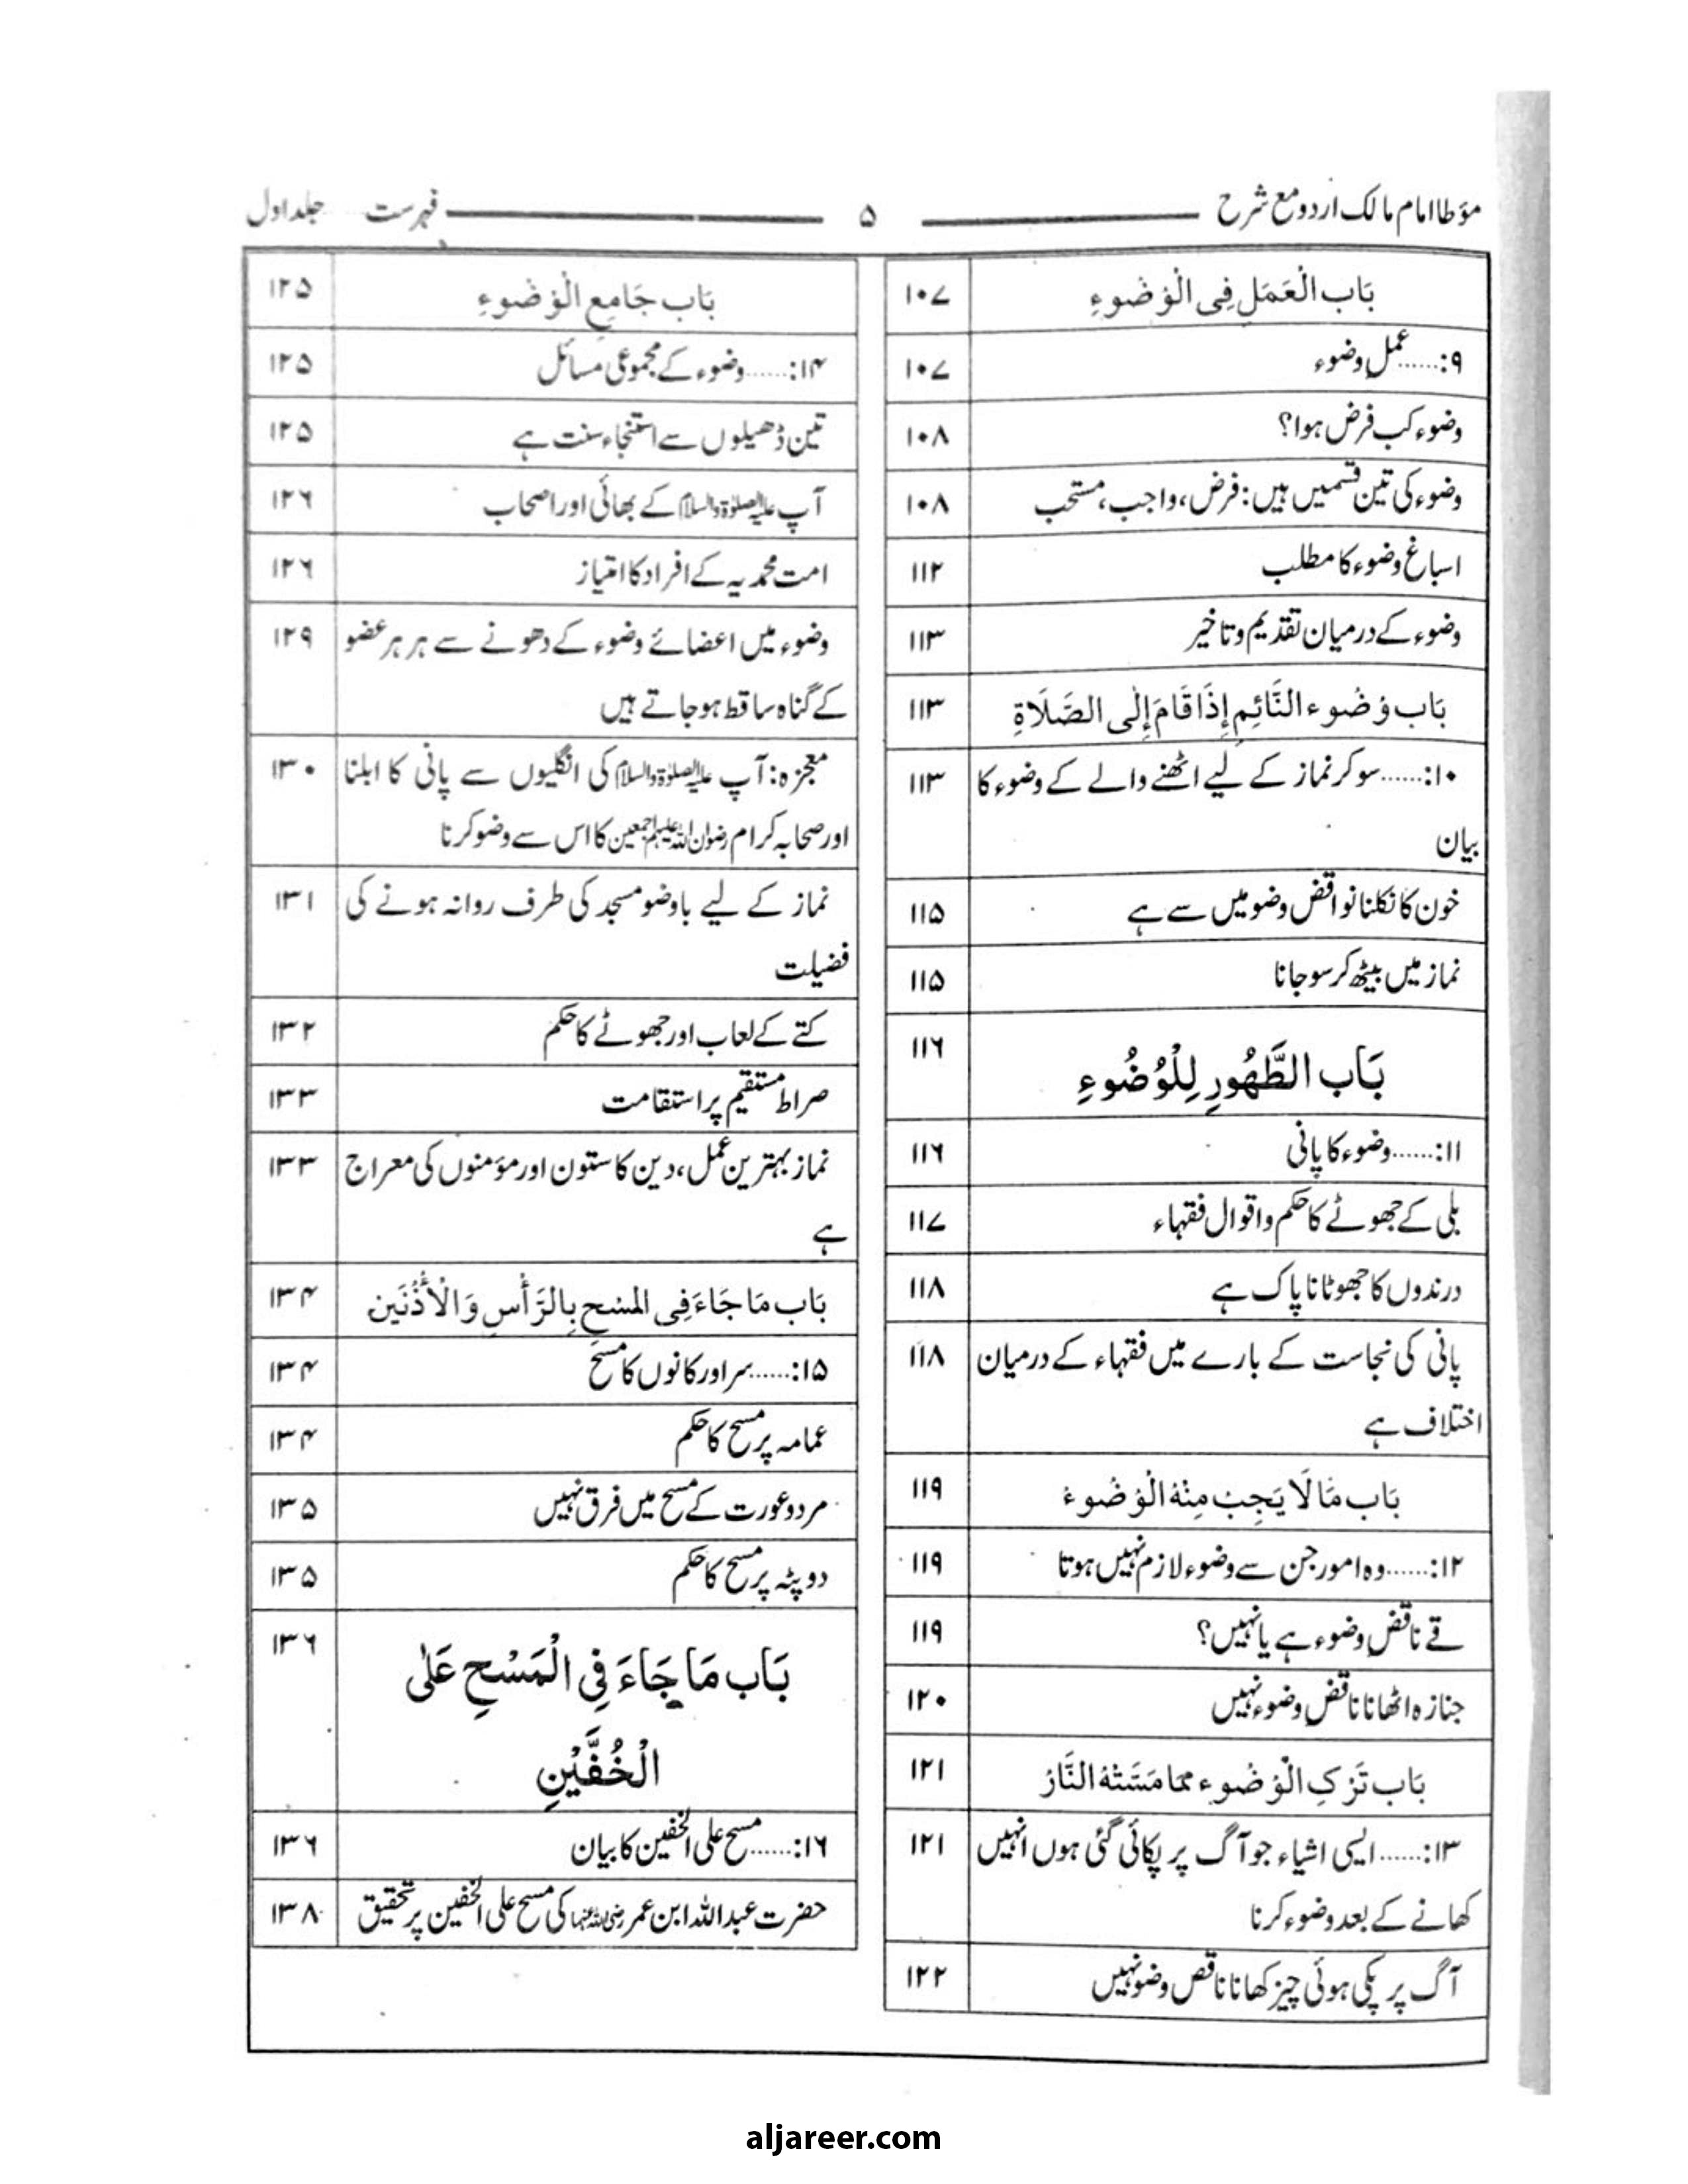 مؤطا امام مالک اردو مع شرح ۵ فہرست جلد اول
بَاب الْعَمَلِ فِی الْوُضُوءِ ۱۰۷
۹:......عمل وضوء ۱۰۷
وضوء کب فرض ہوا؟ ۱۰۸
وضوء کی تین قسمیں ہیں: فرض، واجب، مستحب ۱۰۸
اسباغ وضوء کا مطلب ۱۱۲
وضوء کے درمیان تقدیم و تاخیر ۱۱۳
بَاب وُضُوء النَّائِمِ إِذَا قَامَ إِلَى الصَّلَاةِ ۱۱۳
۱۰:......سو کر نماز کے لیے اٹھنے والے کے وضوء کا ۱۱۳
بیان
خون کا نکلنا نواقض وضو میں سے ہے ۱۱۵
نماز میں بیٹھ کر سو جانا ۱۱۵
بَاب الطَّهُورِ لِلْوُضُوءِ ۱۱۶
۱۱:......وضوء کا پانی ۱۱۶
بلی کے جھوٹے کا حکم و اقوال فقہاء ۱۱۷
درندوں کا جھوٹا ناپاک ہے ۱۱۸
پانی کی نجاست کے بارے میں فقہاء کے درمیان ۱۱۸
اختلاف ہے
بَاب مَا لَا یَجِبُ مِنْهُ الْوُضُوءُ ۱۱۹
۱۲:......وہ امور جن سے وضوء لازم نہیں ہوتا ۱۱۹
قے ناقض وضوء ہے یا نہیں؟ ۱۱۹
جنازہ اٹھانا ناقض وضوء نہیں ۱۲۰
بَاب تَرْکِ الْوُضُوءِ مما مَسَّتْهُ النَّارُ ۱۲۱
۱۳:......ایسی اشیاء جو آگ پر پکائی گئی ہوں انہیں ۱۲۱
کھانے کے بعد وضوء کرنا
آگ پر پکی ہوئی چیز کھانا ناقص وضو نہیں ۱۲۲
بَاب جَامِعِ الْوُضُوءِ ۱۲۵
۱۴:......وضوء کے مجموعی مسائل ۱۲۵
تین ڈھیلوں سے استنجاء سنت ہے ۱۲۵
آپ علیہ الصلوٰۃ والسلام کے بھائی اور اصحاب ۱۲۶
امت محمدیہ کے افراد کا امتیاز ۱۲۶
وضوء میں اعضائے وضوء کے دھونے سے ہر ہر عضو ۱۲۹
کے گناہ ساقط ہو جاتے ہیں
معجزہ: آپ علیہ الصلوٰۃ والسلام کی انگلیوں سے پانی کا ابلنا ۱۳۰
اور صحابہ کرام رضوان اللہ علیہم اجمعین کا اس سے وضو کرنا
نماز کے لیے باوضو مسجد کی طرف روانہ ہونے کی ۱۳۱
فضیلت
کتے کے لعاب اور جھوٹے کا حکم ۱۳۲
صراط مستقیم پر استقامت ۱۳۳
نماز بہترین عمل، دین کا ستون اور مؤمنوں کی معراج ۱۳۳
ہے
بَاب مَا جَاءَ فِی المسْحِ بِالرَّأْسِ وَالْأُذُنَین ۱۳۴
۱۵:......سر اور کانوں کا مسح ۱۳۴
عمامہ پر مسح کا حکم ۱۳۴
مرد و عورت کے مسح میں فرق نہیں ۱۳۵
دوپٹہ پر مسح کا حکم ۱۳۵
بَاب مَا جَاءَ فِی الْمَسْحِ عَلٰی ۱۳۶
الْخُفَّيْنِ
۱۶:......مسح علی الخفین کا بیان ۱۳۶
حضرت عبداللہ ابن عمر رضی اللہ عنہما کی مسح علی الخفین پر تحقیق ۱۳۸
aljareer.com